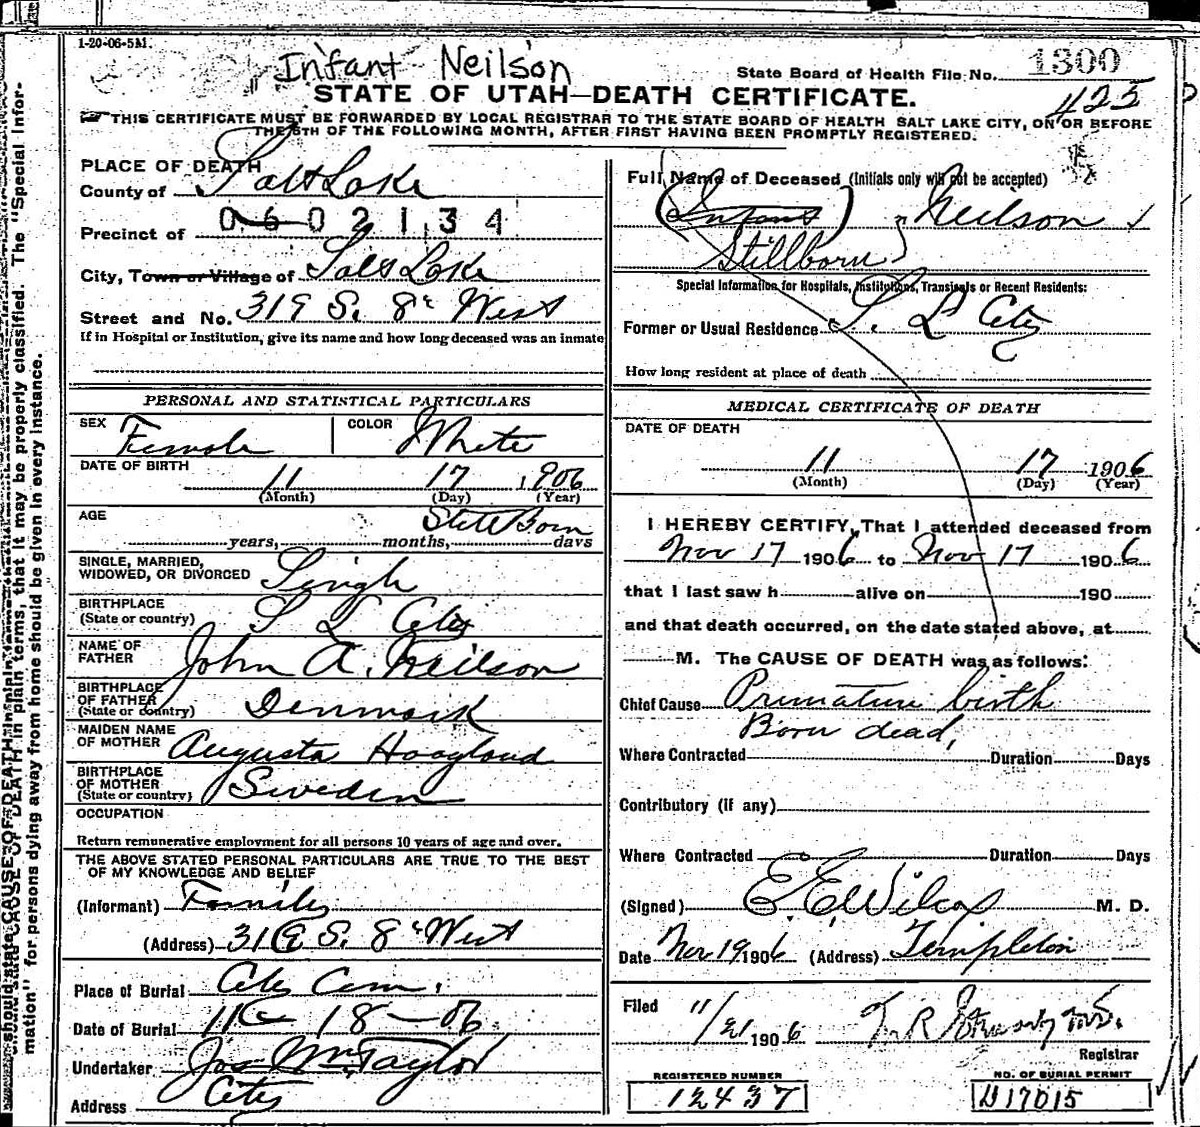 1-20-06-5M.
Infant Neilson
State Board of Health File No. 1300
STATE OF UTAH—DEATH CERTIFICATE.
425
THIS CERTIFICATE MUST BE FORWARDED BY LOCAL REGISTRAR TO THE STATE BOARD OF HEALTH SALT LAKE CITY, ON OR BEFORE
THE 5TH OF THE FOLLOWING MONTH, AFTER FIRST HAVING BEEN PROMPTLY REGISTERED.
PLACE OF DEATH
County of Salt Lake
0602134
Precinct of
City, Town or Village of Salt Lake
Street and No. 319 S. 8th West
If in Hospital or Institution, give its name and how long deceased was an inmate
PERSONAL AND STATISTICAL PARTICULARS
SEX Female COLOR White
DATE OF BIRTH 11 17 1906
(Month) (Day) (Year)
AGE Still Born
years, months, days
SINGLE, MARRIED,
WIDOWED, OR DIVORCED Single
BIRTHPLACE
(State or country) S L City
NAME OF
FATHER John A. Neilson
BIRTHPLACE
OF FATHER
(State or country) Denmark
MAIDEN NAME
OF MOTHER Augusta Hoaglund
BIRTHPLACE
OF MOTHER
(State or country) Sweden
OCCUPATION
Return remunerative employment for all persons 10 years of age and over.
THE ABOVE STATED PERSONAL PARTICULARS ARE TRUE TO THE BEST
OF MY KNOWLEDGE AND BELIEF
(Informant) Family
(Address) 319 S. 8th West
Place of Burial City Cem.
Date of Burial 11 18-06
Undertaker Jos Wm Taylor
Address City
Full Name of Deceased (Initials only will not be accepted)
(Infant) Neilson
Stillborn
Special Information for Hospitals, Institutions, Transients or Recent Residents:
Former or Usual Residence S. L City
How long resident at place of death
MEDICAL CERTIFICATE OF DEATH
DATE OF DEATH
11 17 1906
(Month) (Day) (Year)
I HEREBY CERTIFY, That I attended deceased from
Nov 17 1906 to Nov 17 1906
that I last saw h alive on 190
and that death occurred, on the date stated above, at
M. The CAUSE OF DEATH was as follows:
Chief Cause Premature birth
Born dead,
Where Contracted Duration Days
Contributory (if any)
Where Contracted Duration Days
(Signed) E. E. Wilcox M. D.
Date Nov 19 1906 (Address) Templeton
Filed 11/21 1906 T. R.
Registrar
REGISTERED NUMBER
12437
NO. OF BURIAL PERMIT
D17015
should state CAUSE OF DEATH in plain terms, that it may be properly classified. The "Special Infor-
mation" for persons dying away from home should be given in every instance.